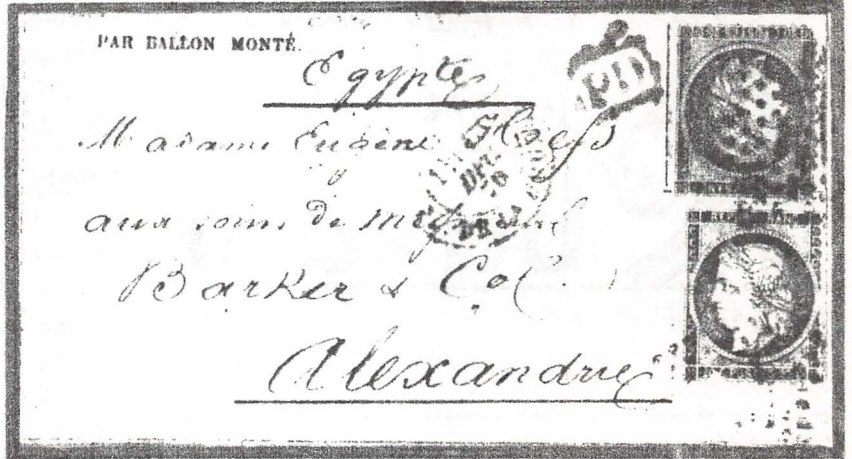 PAR BALLON MONTÉ.
Egypte
PD
Madame Eugène
aux soins de
Barker & Co.
Alexandrie